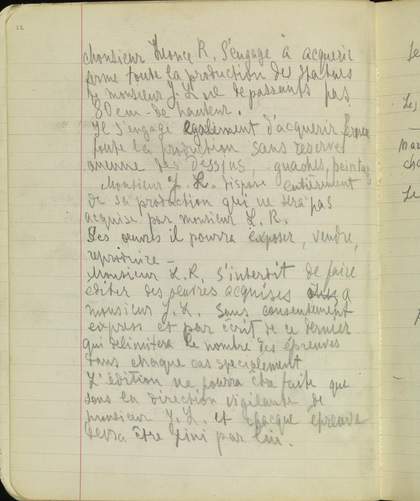 22
Monsieur Léonce R. s'engage à acquerir
ferme toute la production des statues
de monsieur J. L. ne dépassants pas
80 cm. de hauteur.
Il s'engage également d'acquerir ferme
toute la production sans reserve
aucune des Dessins, guaches, peintures
Monsieur J. L. dispose entièrement
de sa production qui ne sera pas
acquise par monsieur L. R.
Ses œuvres il pourra exposer, vendre,
reproduire -
Monsieur L. R. s'interdit de faire
éditer des œuvres acquises à
monsieur J. L. sans consentement
express et par écrit de ce dernier
qui delimitera le nombre des épreuves
dans chaque cas specialement
L'édition ne pourra être faite que
sous la direction vigilante de
monsieur J. L. et chaque épreuve
devra être fini par lui.
Le
Les
Mar
cha
Le